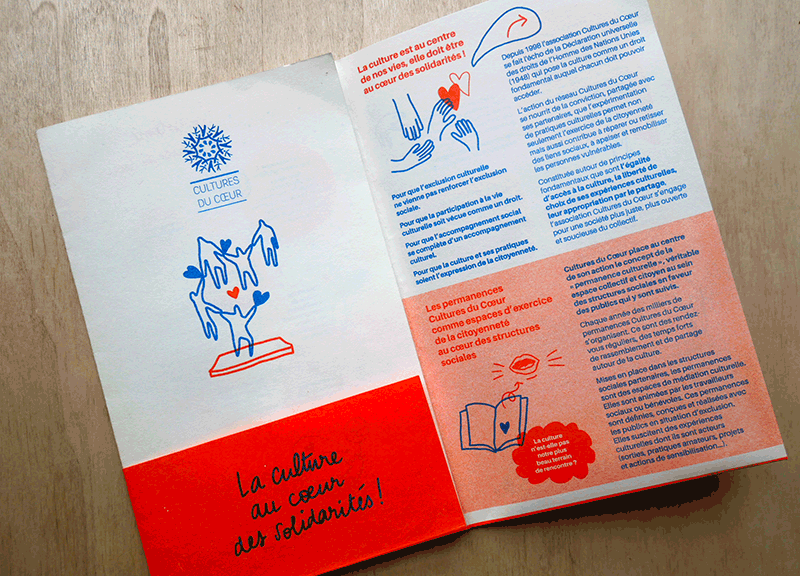 CULTURES
DU CŒUR
La culture
au cœur
des solidarités !
La culture est au centre
de nos vies, elle doit être
au cœur des solidarités !
Pour que l'exclusion culturelle
ne vienne pas renforcer l'exclusion
sociale.
Pour que la participation à la vie
culturelle soit vécue comme un droit.
Pour que l'accompagnement social
se complète d'un accompagnement
culturel.
Pour que la culture et ses pratiques
soient l'expression de la citoyenneté.
Depuis 1998 l'association Cultures du Cœur
se fait l'écho de la Déclaration universelle
des droits de l'Homme des Nations Unies
(1948) qui pose la culture comme un droit
fondamental auquel chacun doit pouvoir
accéder.
L'action du réseau Cultures du Cœur
se nourrit de la conviction, partagée avec
ses partenaires, que l'expérimentation
de pratiques culturelles permet non
seulement l'exercice de la citoyenneté
mais aussi contribue à réparer ou retisser
des liens sociaux, à apaiser et remobiliser
les personnes vulnérables.
Constituée autour de principes
fondamentaux que sont l'égalité
d'accès à la culture, la liberté de
choix de ses expériences culturelles,
leur appropriation par le partage,
l'association Cultures du Cœur s'engage
pour une société plus juste, plus ouverte
et soucieuse du collectif.
Les permanences
Cultures du Cœur
comme espaces d'exercice
de la citoyenneté
au cœur des structures
sociales
La culture
n'est-elle pas
notre plus
beau terrain
de rencontre ?
Cultures du Cœur place au centre
de son action le concept de la
« permanence culturelle », véritable
espace collectif et citoyen au sein
des structures sociales en faveur
des publics qui y sont suivis.
Chaque année des milliers de
permanences Cultures du Cœur
s'organisent. Ce sont des rendez-
vous réguliers, des temps forts
de rassemblement et de partage
autour de la culture.
Mises en place dans les structures
sociales partenaires, les permanences
sont des espaces de médiation culturelle.
Elles sont animées par les travailleurs
sociaux ou bénévoles. Ces permanences
sont définies, conçues et réalisées avec
les publics en situation d'exclusion.
Elles suscitent des expériences
culturelles dont ils sont acteurs
(sorties, pratiques amateurs, projets
et actions de sensibilisation...).